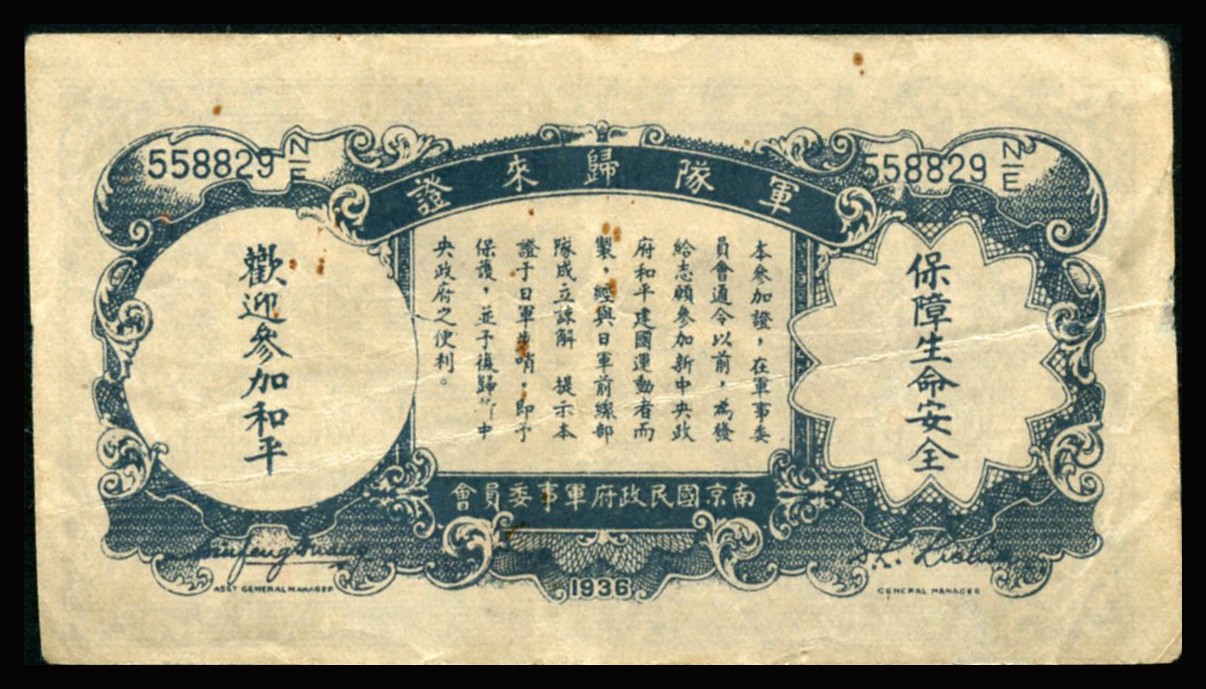 558829 N/E
軍隊歸來證
558829 N/E
保障生命安全
本參加證，在軍事委
員會通令以前，為發
給志願參加新中央政
府和平建國運動者而
製，經與日軍前線部
隊成立諒解 提示本
證于日軍步哨，即予
保護，並予復歸 中
央政府之便利。
歡迎參加和平
南京國民政府軍事委員會
ASS'T GENERAL MANAGER
1936
GENERAL MANAGER